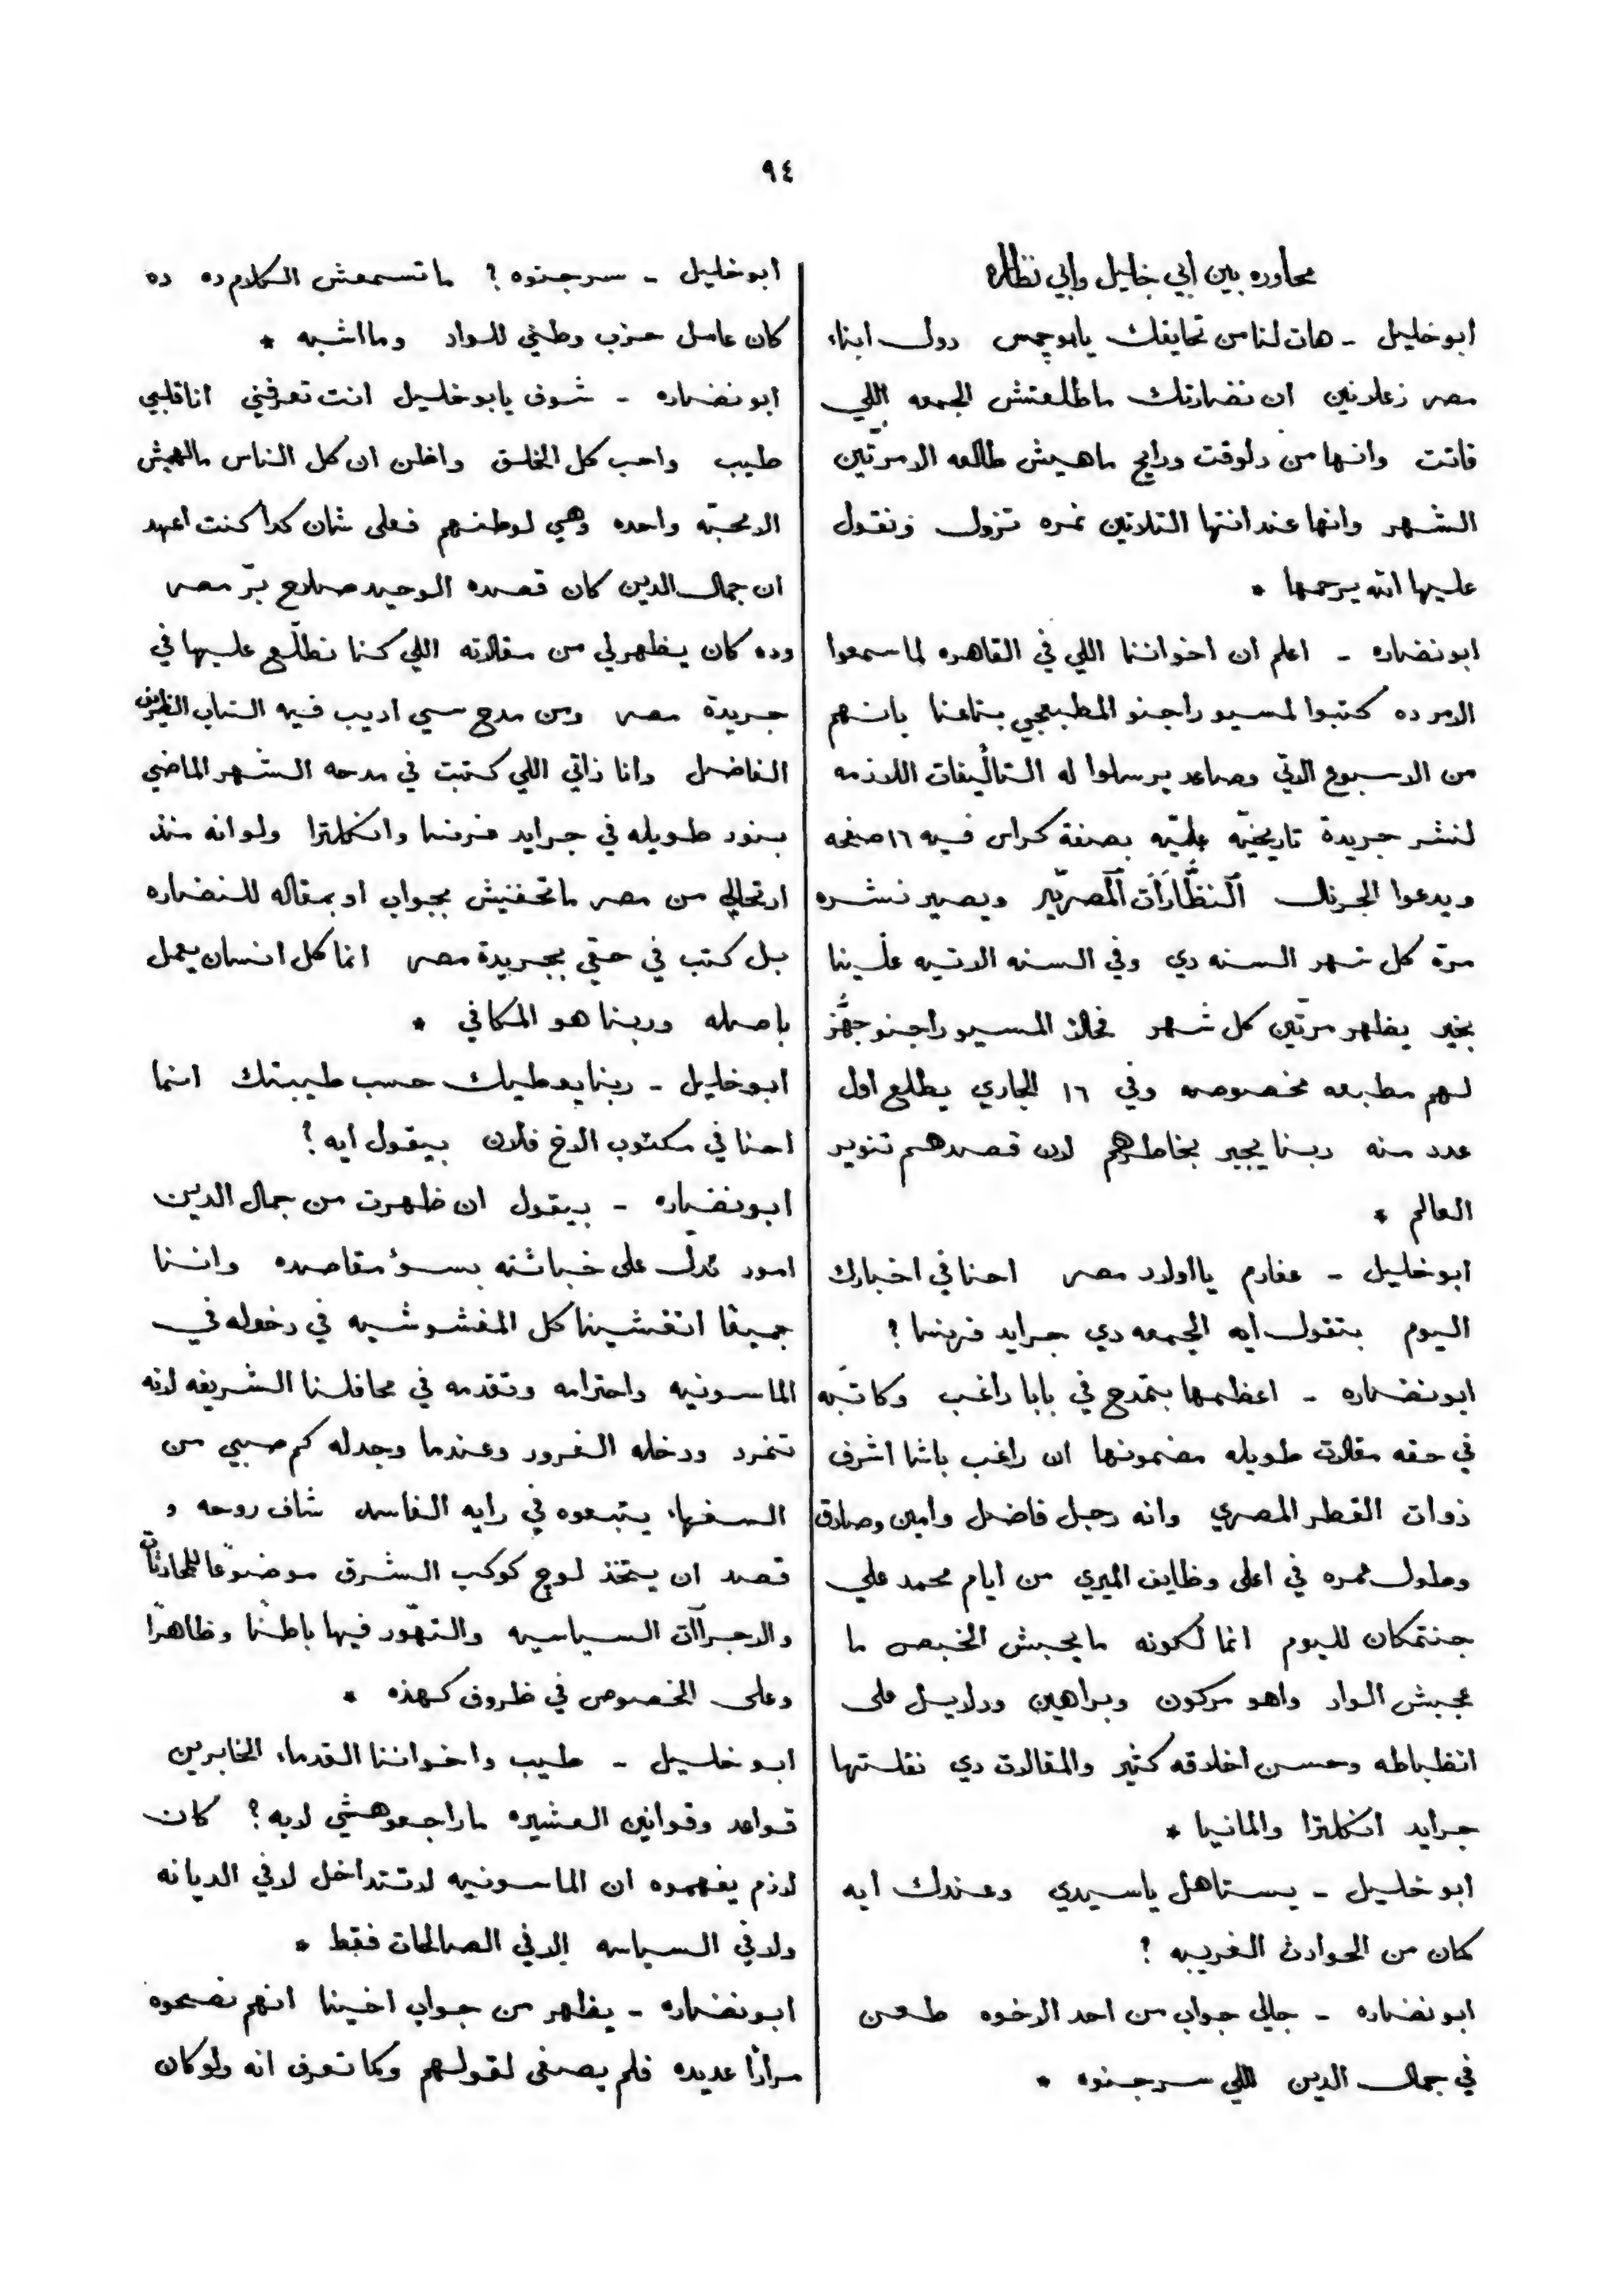 ٩٤
محاوره بين ابي خليل وابي نظاره
ابو خليل - هات لنا من تحايفك يابو جمس دول ابناء
مصر زعلانين ان نضارتك ماطلعتش الجمعه اللي
فاتت وانها من دلوقت ورايح ماهيش طالعه الا مرّتين
الشهر وانها عند انتها التلاتين نمره تزول ونقول
عليها الله يرحمها *
ابو نضاره - اعلم ان اخواننا اللي في القاهره لما سمعوا
الامر ده كتبوا لمسيو راجنو المطبعجي بتاعنا بانهم
من الاسبوع الاتي وصاعد يرسلوا له التاليفات اللازمه
لنشر جريدة تاريخيّه علميّه بصفة كراس فيه ١٦ صفحه
ويدعوا الجرنال النظّارات المصريّه ويصير نشره
مرّة كل شهر السنه دي وفي السنه الاتيه علينا
بخير يظهر مرّتين كل شهر فحالا المسيو راجنو جهّز
لهم مطبعه مخصوصه وفي ١٦ الجاري يطلع اول
عدد منه ربنا يجبر بخاطرهم لان قصدهم تنوير
العالم *
ابو خليل - عفارم يا اولاد مصر احنا في اخبارك
اليوم بتقول ايه الجمعه دي جرايد فرنسا ؟
ابو نضاره - اعظمها بتمدح في بابا راغب وكاتبه
في حقه مقالات طويله مضمونها ان راغب باشا اشرف
ذوات القطر المصري وانه رجل فاضل وامين وصادق
وطول عمره في اعلى وظايف الميري من ايام محمد علي
جنتمكان لليوم انما لكونه مايحبش الخبص ما
عجبش الواد واهو مركون وبراهين ودلايل على
انظباطه وحسن اخلاقه كثير والمقالات دي نقلتها
جرايد انكلترا والمانيا *
ابو خليل - يستاهل ياسيدي وعندك ايه
كمان من الحوادث الغريبه ؟
ابو نضاره - جالي جواب من احد الاخوه طعن
في جمال الدين اللي سرجنوه *
ابو خليل - سرجنوه ؟ ماتسمعش الكلام ده ده
كان عامل حزب وطني للواد وما اشبه *
ابو نضاره - شوف يابو خليل انت تعرفني انا قلبي
طيب واحب كل الخلق واظن ان كل الناس مالهمش
الا محبّه واحده وهي لوطنهم فعلى شان كدا كنت اعهد
ان جمال الدين كان قصده الوحيد صلاح برّ مصر
وده كان يظهر لي من مقالاته اللي كنا نطّلع عليها في
جريدة مصر ومن مدح سي اديب فيه الشاب الظريف
الفاضل وانا ذاتي اللي كتبت في مدحه الشهر الماضي
بنود طويله في جرايد فرنسا وانكلترا ولو انه منذ
ارتحالي من مصر ماتحفنيش بجواب او بمقاله للنضاره
بل كتب في حقي بجريدة مصر انما كل انسان يعمل
باصله وربنا هو المكافي *
ابو خليل - ربنا يعطيك حسب طيبتك انما
احنا في مكتوب الاخ فلان بيقول ايه ؟
ابو نضاره - بيقول ان ظهرت من جمال الدين
امور تدلّ على خباثته بسوء مقاصده واننا
جميعًا اتغشينا كل الغشوشيه في دخوله في
الماسونيه واحترامه وتقدمه في محافلنا الشريفه لانه
تمرد ودخله الغرور وعندما وجد له كم صبي من
السفهاء يتبعوه في رايه الفاسد شاف روحه و
قصد ان يتخذ لوج كوكب الشرق موضوعًا للمحادثات
والاجراآت السياسيه والتهّور فيها باطنًا وظاهرًا
وعلى الخصوص في ظروف كهذه *
ابو خليل - طيب واخواننا القدماء الخابرين
قواعد وقوانين العشيره ماراجعوهشي لايه ؟ كان
لازم يفهموه ان الماسونيه لاتتداخل لا في الديانه
ولا في السياسه الا في الصالحات فقط *
ابو نضاره - يظهر من جواب اخينا انهم نصحوه
مرارًا عديده فلم يصغى لقولهم وكما تعرف انه ولو كان